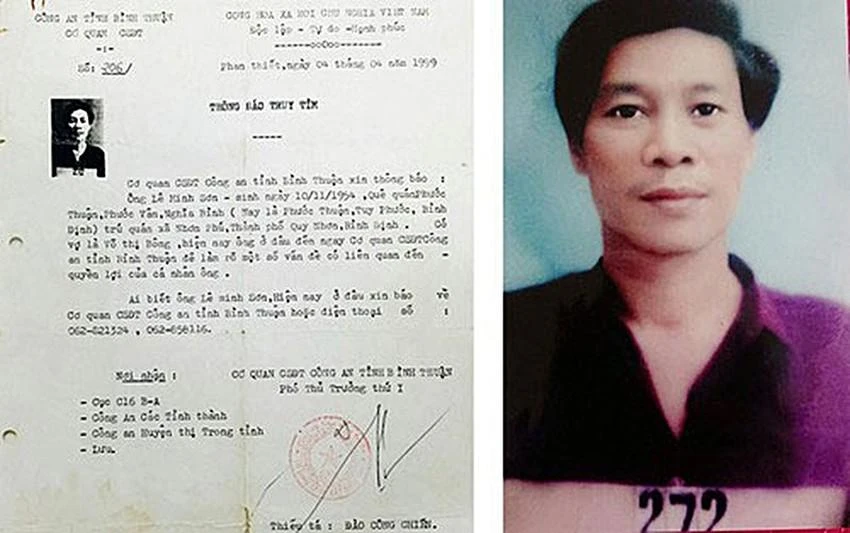 CÔNG AN TỈNH BÌNH THUẬN
CƠ QUAN CSĐT
-:-
Số: 206/
CỘNG HÒA XÃ HỘI CHỦ NGHĨA VIỆT NAM
Độc lập - Tự do - Hạnh phúc
------oo0oo------
Phan thiết, ngày 04 tháng 04 năm 1999
THÔNG BÁO TRUY TÌM
-----
Cơ quan CSĐT Công an tỉnh Bình Thuận xin thông báo :
Ông Lê Minh Sơn - sinh ngày 10/11/1954 ,Quê quán Phước
Thuận,Phước Vân,Nghĩa Bình ( Nay là Phước Thuận,Tuy Phước, Bình
Định) trú quán xã Nhơn Phú,Thành phố Quy Nhơn,Bình Định . Có
vợ là Võ thị Bông ,hiện nay ông ở đâu đến ngay Cơ quan CSĐT Công
an tỉnh Bình Thuận để làm rõ một số vấn đề có liên quan đến -
quyền lợi của cá nhân ông .
Ai biết ông Lê minh Sơn,Hiện nay ở đâu xin báo về
Cơ quan CSĐT Công an tỉnh Bình Thuận hoặc điện thoại số :
062-821324 , 062-858116.
Nơi nhận :
- Cục C16 B-A
- Công An Các Tỉnh thành
- Công an Huyện thị Trong tỉnh
- Lưu.
CƠ QUAN CSĐT CÔNG AN TỈNH BÌNH THUẬN
Phó Thủ Trưởng thứ I
Thiếu tá : ĐÀO CÔNG CHIẾN.
272